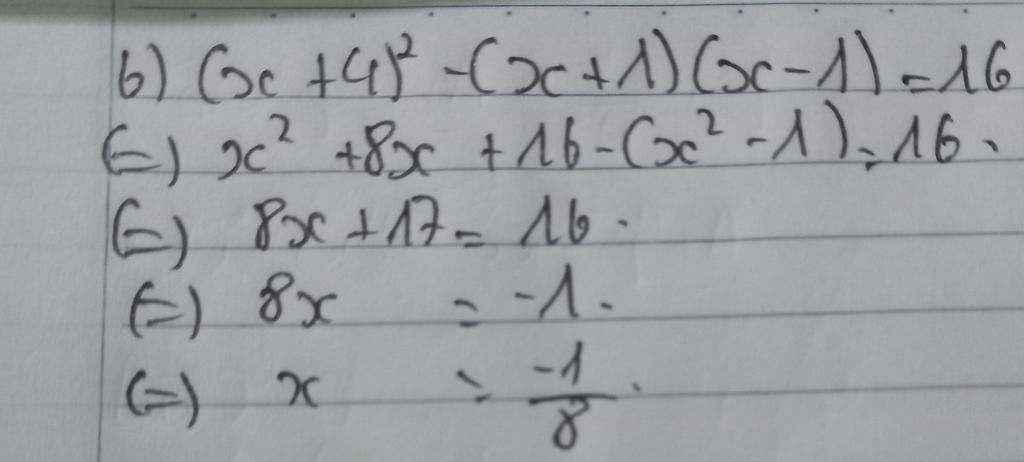 b) (x + 4)² - (x + 1)(x - 1) = 16
(=) x² + 8x + 16 - (x² - 1) = 16.
(=) 8x + 17 = 16.
(=) 8x = -1.
(=) x = -1/8.